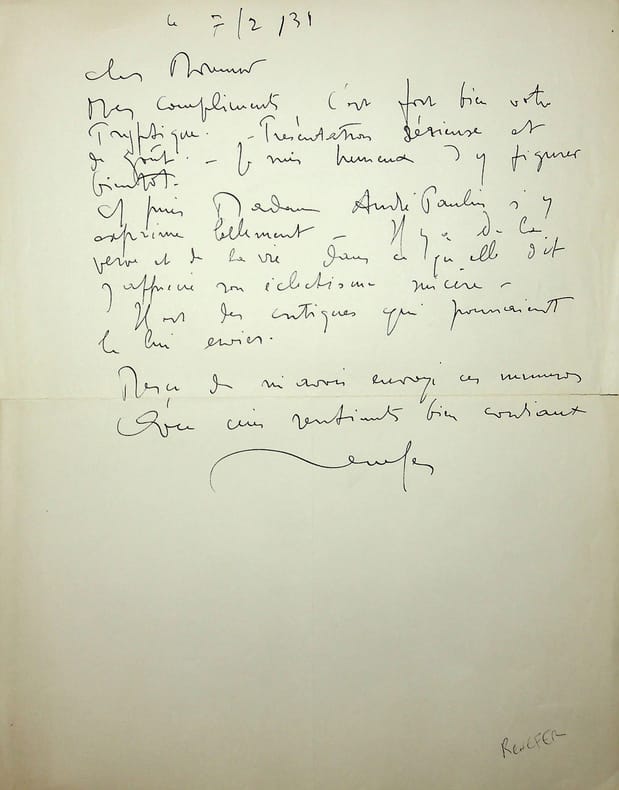 le 7/2/31
cher Monsieur
Mes compliments C'est fort bien votre
Tryptique. - Présentation sérieuse et
de goût. - Je suis heureux d'y figurer
bientôt.
Et puis Madame André Paulin s'y
exprime tellement - Il y a de la
verve et de la vie dans ce qu'elle dit
J'apprécie son éclectisme sincère -
Il est des critiques qui pourraient
le lui envier.
Merci de m'avoir envoyé ces numéros
avec mes sentiments bien cordiaux
Renefer
RENEFER